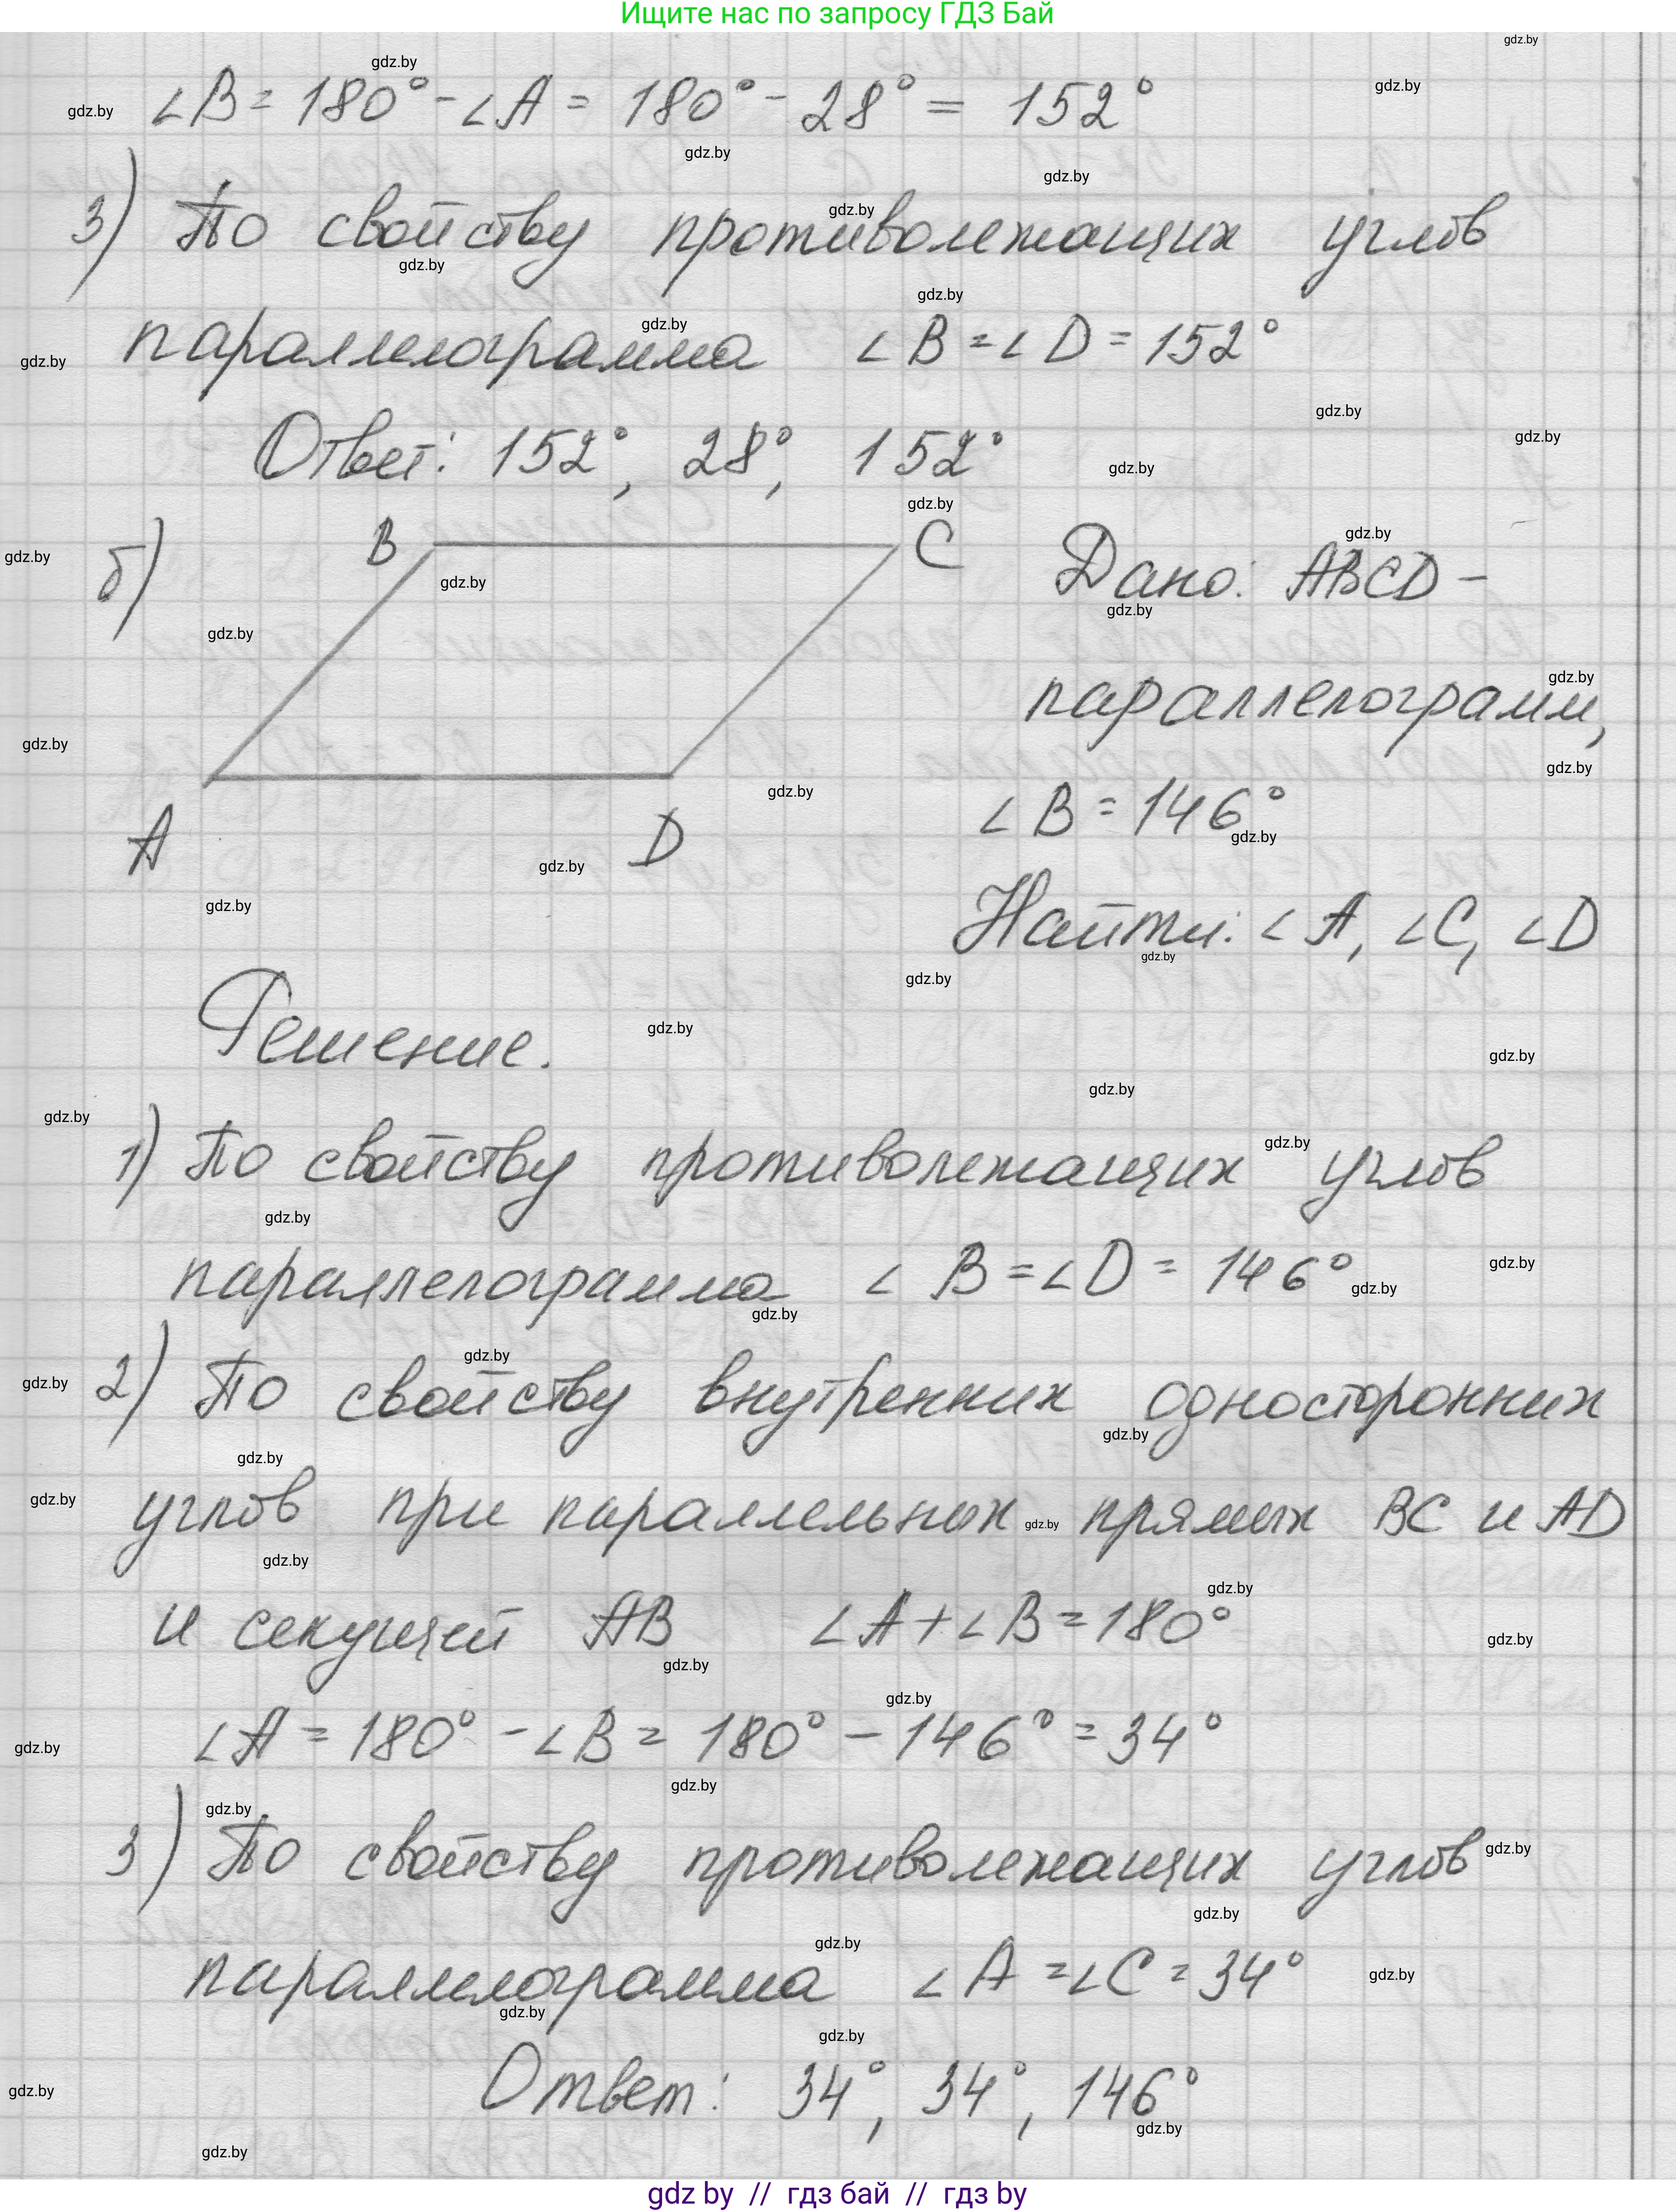 Ищите нас по запросу ГДЗ Бай
∠B = 180° - ∠A = 180° - 28° = 152°
3) По свойству противолежащих углов
параллелограмма ∠B = ∠D = 152°
Ответ: 152°, 28°, 152°
б) B C A D
Дано: ABCD –
параллелограмм,
∠B = 146°
Найти: ∠A, ∠C, ∠D
Решение.
1) По свойству противолежащих углов
параллелограмма ∠B = ∠D = 146°
2) По свойству внутренних односторонних
углов при параллельных прямых BC и AD
и секущей AB ∠A + ∠B = 180°
∠A = 180° - ∠B = 180° - 146° = 34°
3) По свойству противолежащих углов
параллелограмма ∠A = ∠C = 34°
Ответ: 34°, 34°, 146°
gdz by // гдз бай // гдз by